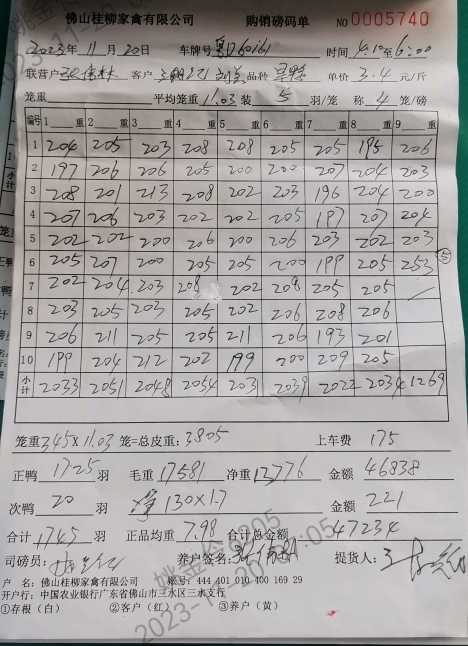 佛山桂柳家禽有限公司 购销磅码单 NO 0005740
2023年11月20日 车牌号 时间 4:10至6:00
联营户 客户 品种 单价 3.4 元/斤
笼重 平均笼重 11.03 装 5 羽/笼 称 4 笼/磅
编号 1 重 2 重 3 重 4 重 5 重 6 重 7 重 8 重 9 重
1 204 205 203 208 208 205 205 195 206
2 197 206 206 205 200 200 207 204 203
3 208 201 213 208 202 203 196 204 200
4 207 206 203 202 202 205 197 207 204
5 202 202 200 206 200 206 203 202 203
6 205 207 200 205 205 200 199 205 253 ⑤
7 202 204 203 208 202 208 205 205
8 203 205 203 205 202 206 208 206
9 206 211 205 205 211 206 193 201
10 199 204 212 202 199 200 209 205
小计 2033 2051 2048 2054 2031 2039 2022 2034 1269
笼重 345×11.03 笼=总皮重: 3805 上车费 175
正鸭 1725 羽 毛重 17581 净重 13776 金额 46838
次鸭 20 羽 净 130×1.7 金额 221
合计 1745 羽 正品均重 7.98 合计总金额 47234
司磅员: 养户签名: 提货人:
户 名: 佛山桂柳家禽有限公司 账号: 444 401 010 400 169 29
开户行: 中国农业银行广东省佛山市三水区三水支行
①存根(白) ②客户(红) ③养户(黄)